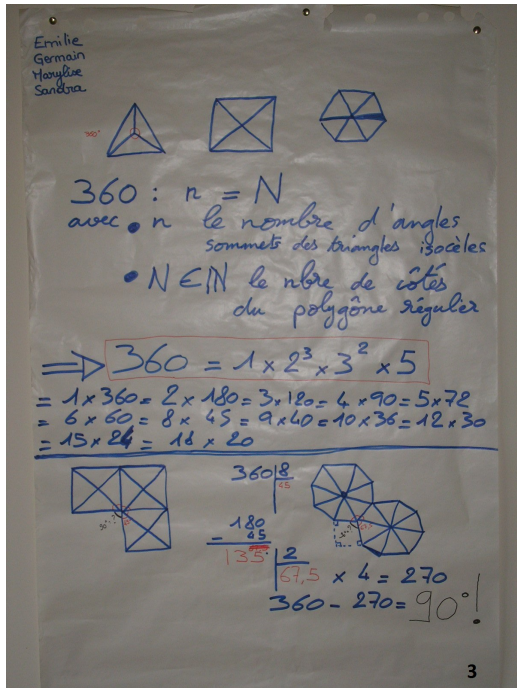 Emilie
Germain
Marylise
Sandra
360°
360 : n = N
avec • n le nombre d'angles
sommets des triangles isocèles
• N ∈ ℕ le nbre de côtés
du polygône régulier
⇒ 360 = 1 × 2³ × 3² × 5
= 1 × 360 = 2 × 180 = 3 × 120 = 4 × 90 = 5 × 72
= 6 × 60 = 8 × 45 = 9 × 40 = 10 × 36 = 12 × 30
= 15 × 24 = 18 × 20
360 | 8
45
90°
180
- 45
135
2
67,5 × 4 = 270
360 - 270 = 90° !
3